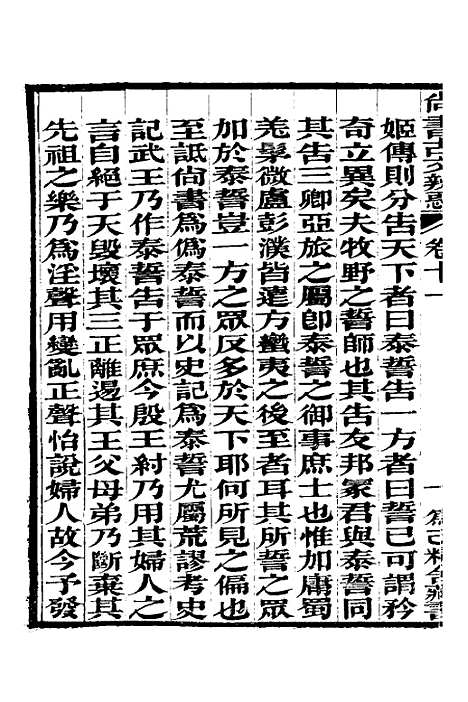 尚書古文辨惑　卷十一　一　爲己精舍藏書
姬傳則分告天下者曰泰誓告一方者曰誓已可謂矜
奇立異矣夫牧野之誓師也其告友邦冢君與泰誓同
其告三卿亞旅之屬卽泰誓之御事庶士也惟加庸蜀
羌髳微盧彭濮皆遠方蠻夷之後至者耳其所誓之眾
加於泰誓豈一方之眾反多於天下耶何所見之偏也
至詆尚書爲僞泰誓而以史記爲泰誓尤屬荒謬考史
記武王乃作泰誓告于眾庶今殷王紂乃用其婦人之
言自絕于天毀壞其三正離逷其王父母弟乃斷棄其
先祖之樂乃爲淫聲用變亂正聲怡說婦人故今予發